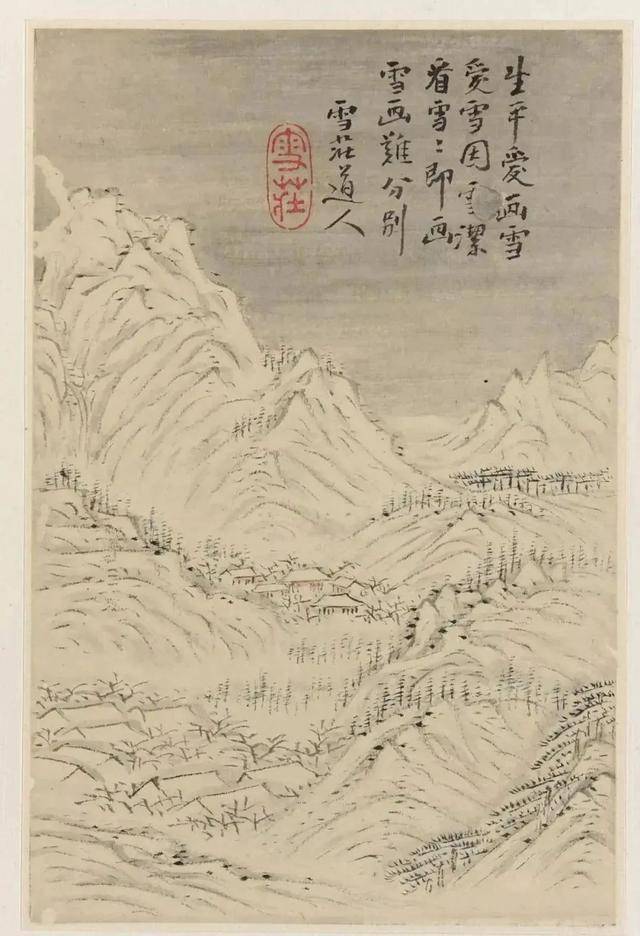 生平愛画雪
愛雪因雪潔
看雪〻即画
雪画難分别
雪莊道人
雪莊